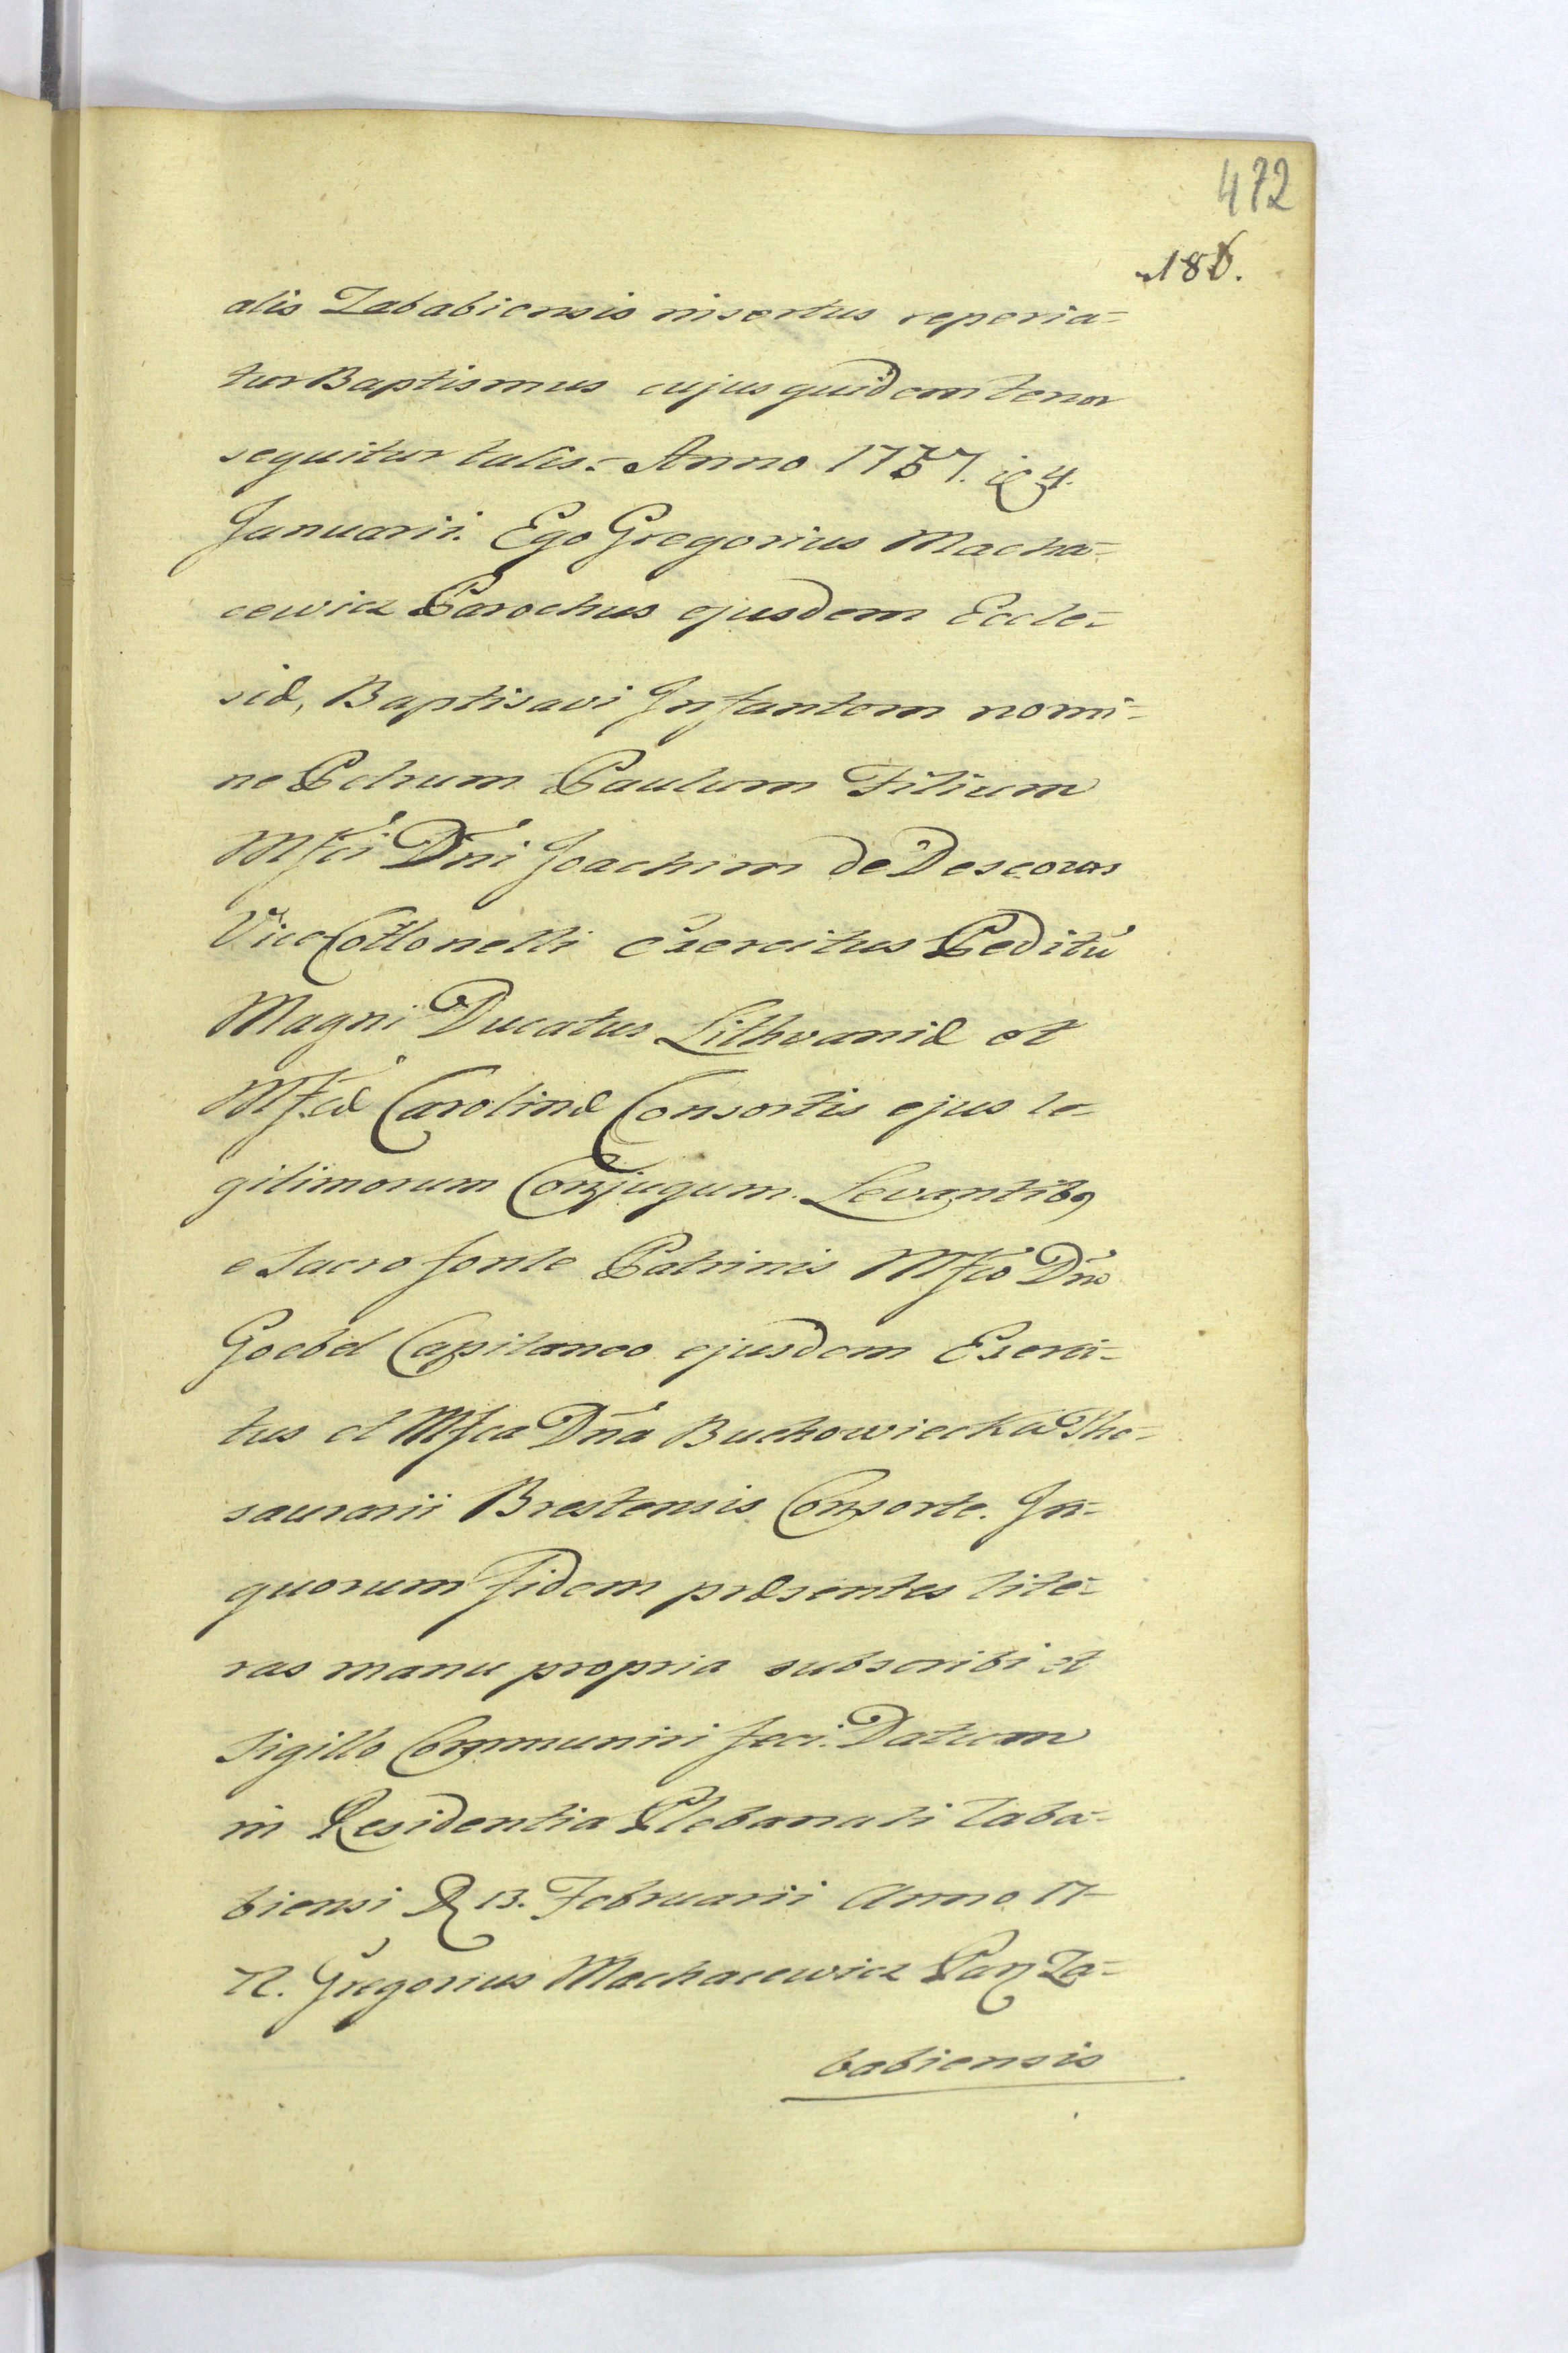 472
186.
alis Zababiensis insertus reperia=
tur Baptismus cujus quidem tenor
sequitur talis. Anno 1757. 4.
Januarii. Ego Gregorius Macha=
cewicz Parochus ejusdem Eccle=
siæ, Baptisavi Infantem nomi=
ne Petrum Paulum Filium
Mfci Dni Joachim de Descours
Vice Collonelli Exercitus Peditū
Magni Ducatus Lithvaniæ et
Mfcæ Carolinæ Consortis ejus le=
gitimorum Conjugum. Levantibꝯ
e Sacro fonte Patrinis Mfco Dno
Goebel Capitaneo ejusdem Exerci=
tus et Mfca Dna Buchowiecka The=
saurarii Brestensis Consorte. In=
quorum fidem præsentes lite=
ras manu propria subscribi et
Sigillo Communiri feci. Datum
in Residentia Plebanali Zaba=
biensi D 13. Februarii Anno 17
72. Gregorius Machacewicz Par Za=
babiensis